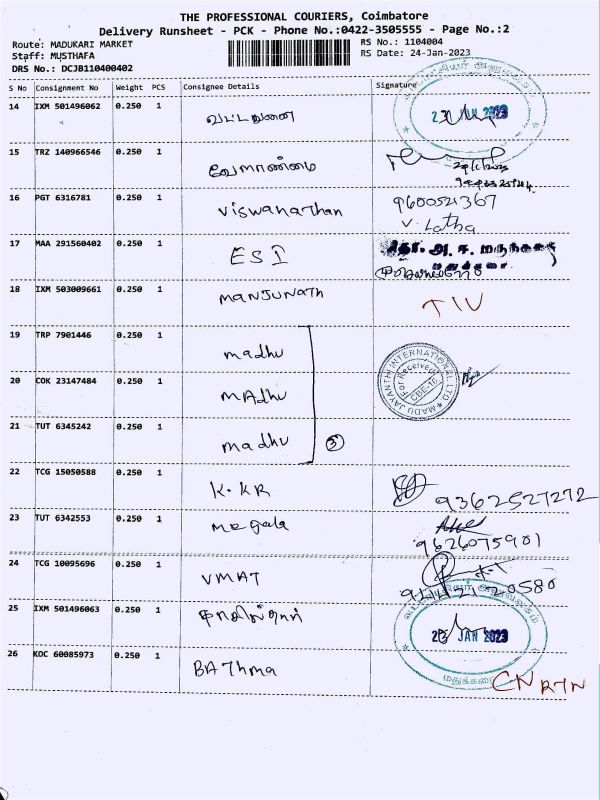 THE PROFESSIONAL COURIERS, Coimbatore
Delivery Runsheet - PCK - Phone No.:0422-3505555 - Page No.:2
Route: MADUKARI MARKET RS No.: 1104004
Staff: MUSTHAFA RS Date: 24-Jan-2023
DRS No.: DCJB110400402
S No Consignment No Weight PCS Consignee Details Signature
14 IXM 501496062 0.250 1 வட்டவுணை
15 TRZ 140966546 0.250 1 வேளாண்மை
16 PGT 6316781 0.250 1 Viswanathan 9600521367
V. Latha
17 MAA 291560402 0.250 1 ESI
18 IXM 503009661 0.250 1 MANJUNATH TIV
19 TRP 7901446 0.250 1 madhu
20 COK 23147484 0.250 1 MAdhu
MADU JAYANTHI INTERNATIONAL LTD
For Received
CBE-16
21 TUT 6345242 0.250 1 madhu 3
22 TCG 15050588 0.250 1 K.KR 9362527272
23 TUT 6342553 0.250 1 Megala 9626075901
24 TCG 10095696 0.250 1 VMAT
25 IXM 501496063 0.250 1
JAN 2023
மதுக்கரை
26 KOC 60085973 0.250 1 BAThma CN RTN